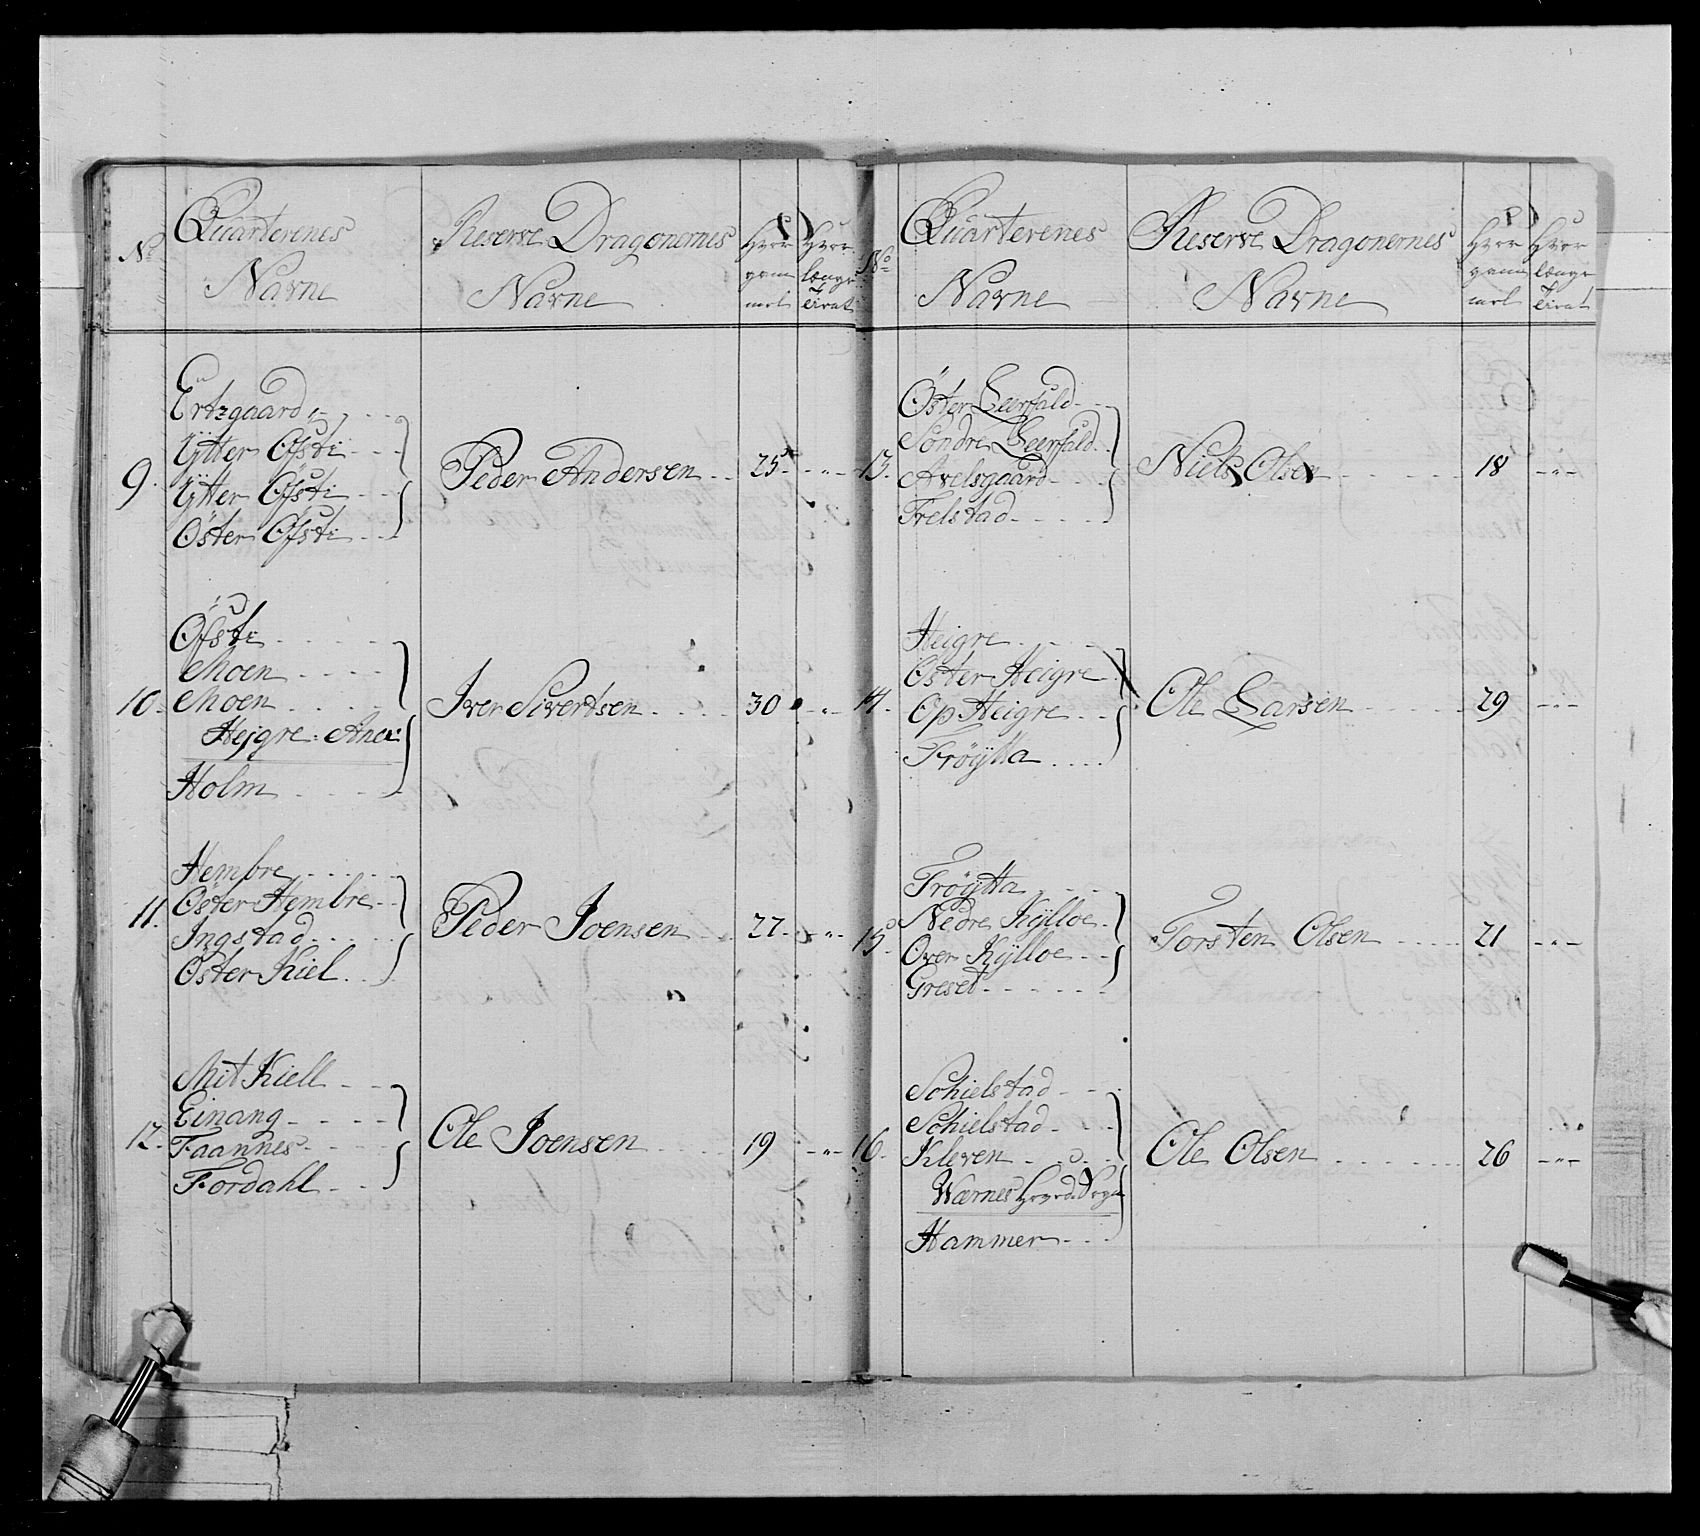 No
Quarterenes
Navne
Reserve Dragonernes
Navne
Hvor
gam
mel
Hvor
længe
Tient
9.
Ertzgaard
Ytter Øfsti
Ytter Øfsti
Öster Øfsti
Peder Andersen
25
10.
Øfsti
Moen
Moen
Hejgre: Anex:
Holm
Iver Sivertsen
30
11.
Hembre
Öster Hembre
Ingstad
Öster Kiel
Peder Joensen
27
12.
Mit Kiell
Einang
Faannes
Fordahl
Ole Joensen
19
No
Quarterenes
Navne
Reserve Dragonernes
Navne
Hvor
gam
mel
Hvor
længe
Tient
13.
Öster Leerfald
Söndre Leerfald
Avelsgaard
Frelstad
Niels Olsen
18
14.
Heigre
Öster Heigre
Op Heigre
Tröÿtta
Ole Larsen
29
15.
Tröÿtta
Nedre Kÿlloe
Over Kÿlloe
Greset
Torsten Olsen
21
16.
Schielstad
Schielstad
Kleven
Wærnes Hoved Sogn
Hammer
Ole Olsen
26